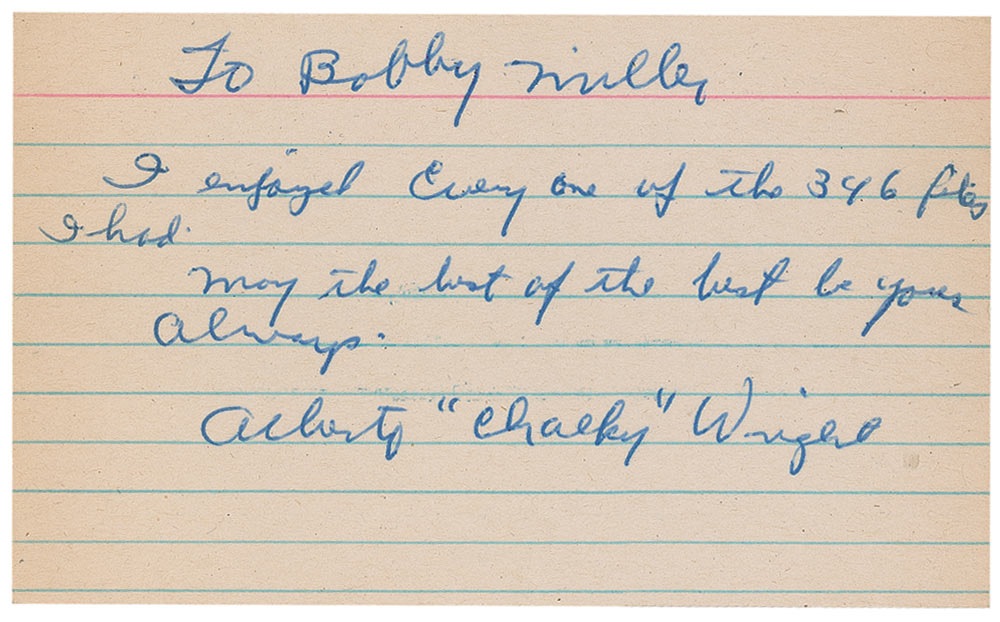 To Bobby Miller
I enjoyed Every one of the 346 fites
I had.
May the best of the best be yours
Always.
Alberto "Chalky" Wright